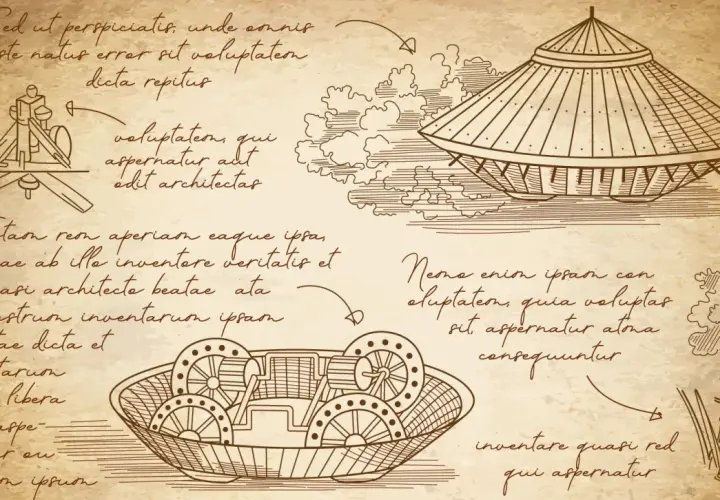 Sed ut perspiciatis, unde omnis
iste natus error sit voluptatem
dicta repitus
voluptatem, qui
aspernatur aut
odit architectas
totam rem aperiam eaque ipsa,
quae ab illo inventore veritatis et
quasi architecto beatae ata
nostrum inventarum ipsam
tae dicta et
tarum
libera
aspe-
r ou
m ipsum
Nemo enim ipsam con
oluptatem, quia voluptas
sit, aspernatur atma
consequuntur
inventare quasi red
qui aspernatur